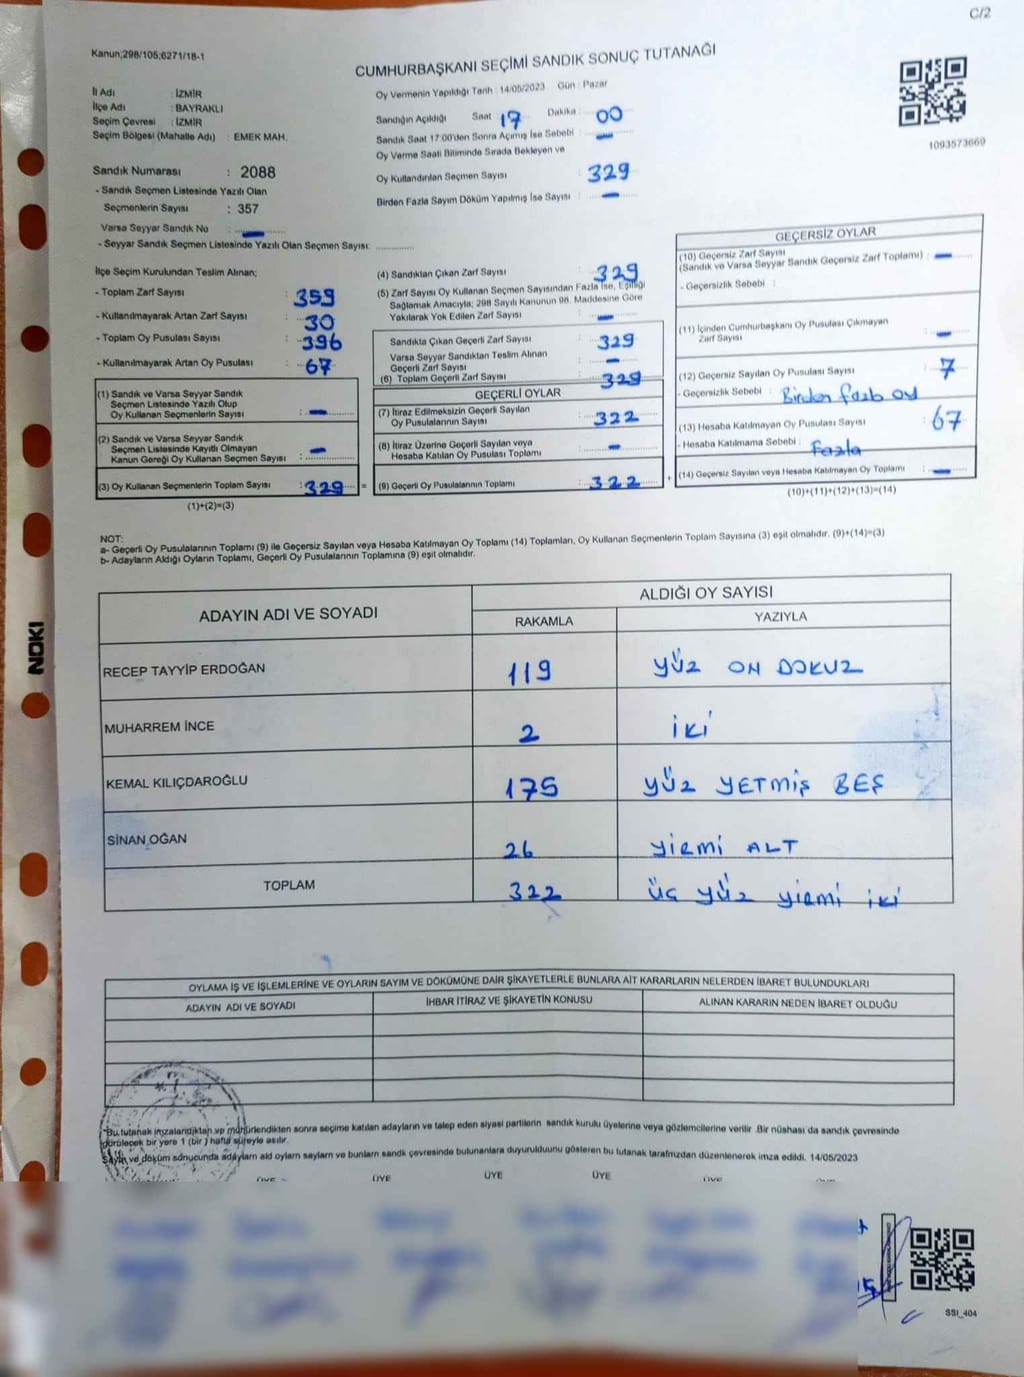 C/2
Kanun;298/105;6271/18-1
CUMHURBAŞKANI SEÇİMİ SANDIK SONUÇ TUTANAĞI
İl Adı : İZMİR
İlçe Adı : BAYRAKLI
Seçim Çevresi : İZMİR
Seçim Bölgesi (Mahalle Adı) : EMEK MAH.
Oy Vermenin Yapıldığı Tarih : 14/05/2023 Gün : Pazar
Sandığın Açıldığı Saat 17 Dakika 00
Sandık Saat 17:00'den Sonra Açımış İse Sebebi : —
Oy Verme Saati Bitiminde Sırada Bekleyen ve
Oy Kullandırılan Seçmen Sayısı : 329
Birden Fazla Sayım Döküm Yapılmış İse Sayısı : —
1093573669
Sandık Numarası : 2088
- Sandık Seçmen Listesinde Yazılı Olan
Seçmenlerin Sayısı : 357
Varsa Seyyar Sandık No : —
- Seyyar Sandık Seçmen Listesinde Yazılı Olan Seçmen Sayısı:
İlçe Seçim Kurulundan Teslim Alınan;
- Toplam Zarf Sayısı : 359
- Kullanılmayarak Artan Zarf Sayısı : 30
- Toplam Oy Pusulası Sayısı : 396
- Kullanılmayarak Artan Oy Pusulası : 67
(1) Sandık ve Varsa Seyyar Sandık
Seçmen Listesinde Yazılı Olup
Oy Kullanan Seçmenlerin Sayısı : —
(2) Sandık ve Varsa Seyyar Sandık
Seçmen Listesinde Kayıtlı Olmayan
Kanun Gereği Oy Kullanan Seçmen Sayısı : —
(3) Oy Kullanan Seçmenlerin Toplam Sayısı : 329 =
(1)+(2)=(3)
(4) Sandıktan Çıkan Zarf Sayısı : 329
(5) Zarf Sayısı Oy Kullanan Seçmen Sayısından Fazla İse, Eşitliği
Sağlamak Amacıyla; 298 Sayılı Kanunun 98. Maddesine Göre
Yakılarak Yok Edilen Zarf Sayısı : —
Sandıkta Çıkan Geçerli Zarf Sayısı : 329
Varsa Seyyar Sandıktan Teslim Alınan
Geçerli Zarf Sayısı : —
(6) Toplam Geçerli Zarf Sayısı : 329
GEÇERLİ OYLAR
(7) İtiraz Edilmeksizin Geçerli Sayılan
Oy Pusulalarının Sayısı : 322
(8) İtiraz Üzerine Geçerli Sayılan veya
Hesaba Katılan Oy Pusulası Toplamı : —
(9) Geçerli Oy Pusulalarının Toplamı : 322 +
GEÇERSİZ OYLAR
(10) Geçersiz Zarf Sayısı
(Sandık ve Varsa Seyyar Sandık Geçersiz Zarf Toplamı) : —
- Geçersizlik Sebebi :
(11) İçinden Cumhurbaşkanı Oy Pusulası Çıkmayan
Zarf Sayısı : —
(12) Geçersiz Sayılan Oy Pusulası Sayısı : 7
- Geçersizlik Sebebi : Birden fazla oy
(13) Hesaba Katılmayan Oy Pusulası Sayısı : 67
- Hesaba Katılmama Sebebi : Fazla
(14) Geçersiz Sayılan veya Hesaba Katılmayan Oy Toplamı : —
(10)+(11)+(12)+(13)=(14)
NOT:
a- Geçerli Oy Pusulalarının Toplamı (9) ile Geçersiz Sayılan veya Hesaba Katılmayan Oy Toplamı (14) Toplamları, Oy Kullanan Seçmenlerin Toplam Sayısına (3) eşit olmalıdır. (9)+(14)=(3)
b- Adayların Aldığı Oyların Toplamı, Geçerli Oy Pusulalarının Toplamına (9) eşit olmalıdır.
ADAYIN ADI VE SOYADI ALDIĞI OY SAYISI
RAKAMLA YAZIYLA
RECEP TAYYİP ERDOĞAN 119 YÜZ ON DOKUZ
MUHARREM İNCE 2 İKİ
KEMAL KILIÇDAROĞLU 175 YÜZ YETMİŞ BEŞ
SİNAN OĞAN 26 YİRMİ ALT
TOPLAM 322 ÜÇ YÜZ YİRMİ İKİ
NOKI
OYLAMA İŞ VE İŞLEMLERİNE VE OYLARIN SAYIM VE DÖKÜMÜNE DAİR ŞİKAYETLERLE BUNLARA AİT KARARLARIN NELERDEN İBARET BULUNDUKLARI
ADAYIN ADI VE SOYADI İHBAR İTİRAZ VE ŞİKAYETİN KONUSU ALINAN KARARIN NEDEN İBARET OLDUĞU
*Bu tutanak imzalandıktan ve mühürlendikten sonra seçime katılan adayların ve talep eden siyasi partilerin sandık kurulu üyelerine veya gözlemcilerine verilir. Bir nüshası da sandık çevresinde
görülecek bir yere 1 (bir ) hafta süreyle asılır.
Sayım ve döküm sonucunda adayların ald oyların sayların ve bunların sandk çevresinde bulunanlara duyurulduunu gösteren bu tutanak tarafmzdan düzenlenerek imza edildi. 14/05/2023
ÜYE ÜYE ÜYE ÜYE ÜYE ÜYE
SSI_404